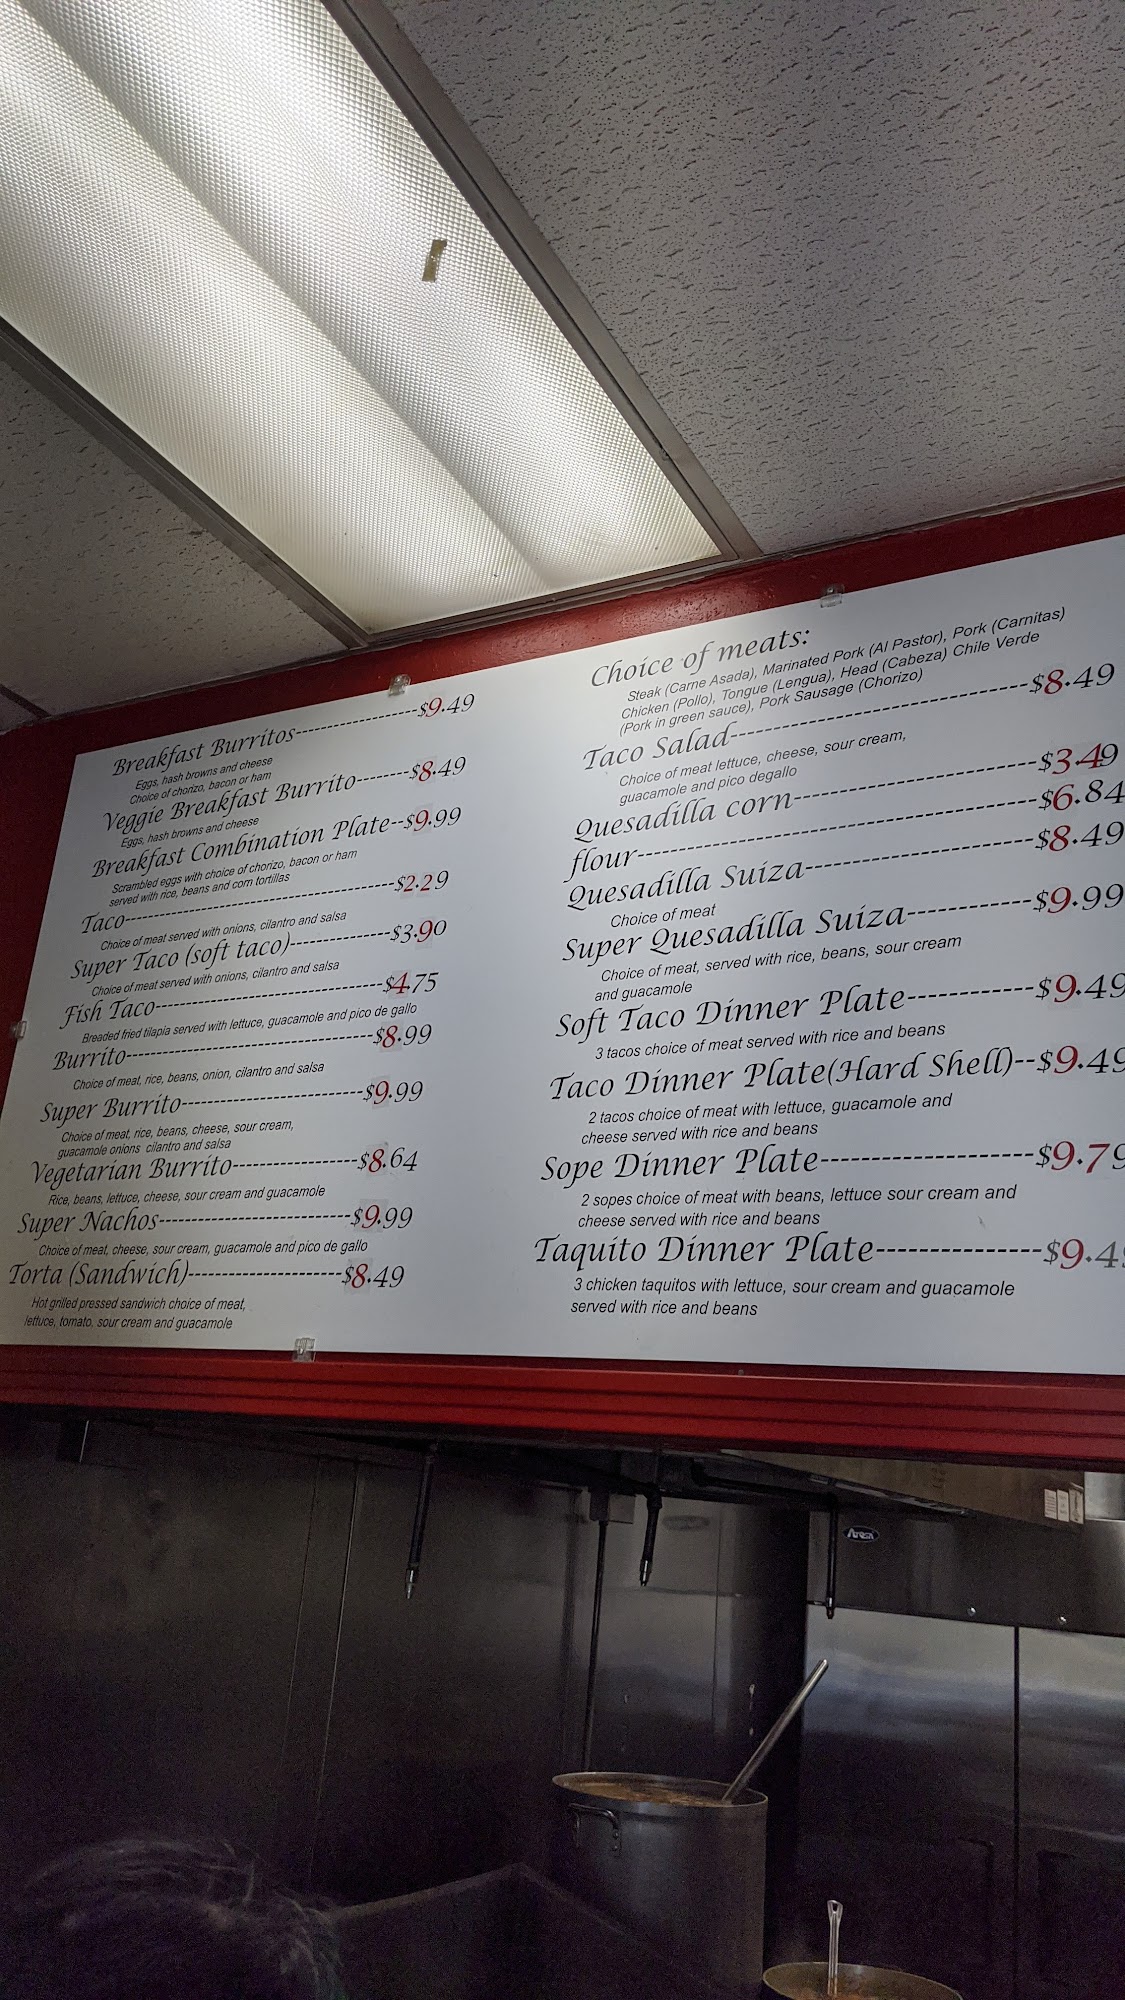 Breakfast Burritos---------------$9.49
Eggs, hash browns and cheese
Choice of chorizo, bacon or ham
Veggie Breakfast Burrito-------$8.49
Eggs, hash browns and cheese
Breakfast Combination Plate--$9.99
Scrambled eggs with choice of chorizo, bacon or ham
served with rice, beans and corn tortillas
Taco-----------------------------------$2.29
Choice of meat served with onions, cilantro and salsa
Super Taco (soft taco)-------------$3.90
Choice of meat served with onions, cilantro and salsa
Fish Taco------------------------------$4.75
Breaded fried tilapia served with lettuce, guacamole and pico de gallo
Burrito---------------------------------$8.99
Choice of meat, rice, beans, onion, cilantro and salsa
Super Burrito------------------------$9.99
Choice of meat, rice, beans, cheese, sour cream,
guacamole onions cilantro and salsa
Vegetarian Burrito----------------$8.64
Rice, beans, lettuce, cheese, sour cream and guacamole
Super Nachos------------------------$9.99
Choice of meat, cheese, sour cream, guacamole and pico de gallo
Torta (Sandwich)-------------------$8.49
Hot grilled pressed sandwich choice of meat,
lettuce, tomato, sour cream and guacamole
Choice of meats:
Steak (Carne Asada), Marinated Pork (Al Pastor), Pork (Carnitas)
Chicken (Pollo), Tongue (Lengua), Head (Cabeza) Chile Verde
(Pork in green sauce), Pork Sausage (Chorizo)
Taco Salad-----------------------------$8.49
Choice of meat lettuce, cheese, sour cream,
guacamole and pico degallo
Quesadilla corn-----------------------$3.49
flour------------------------------------$6.84
Quesadilla Suiza---------------------$8.49
Choice of meat
Super Quesadilla Suiza-----------$9.99
Choice of meat, served with rice, beans, sour cream
and guacamole
Soft Taco Dinner Plate------------$9.49
3 tacos choice of meat served with rice and beans
Taco Dinner Plate(Hard Shell)--$9.49
2 tacos choice of meat with lettuce, guacamole and
cheese served with rice and beans
Sope Dinner Plate-------------------$9.79
2 sopes choice of meat with beans, lettuce sour cream and
cheese served with rice and beans
Taquito Dinner Plate---------------$9.49
3 chicken taquitos with lettuce, sour cream and guacamole
served with rice and beans